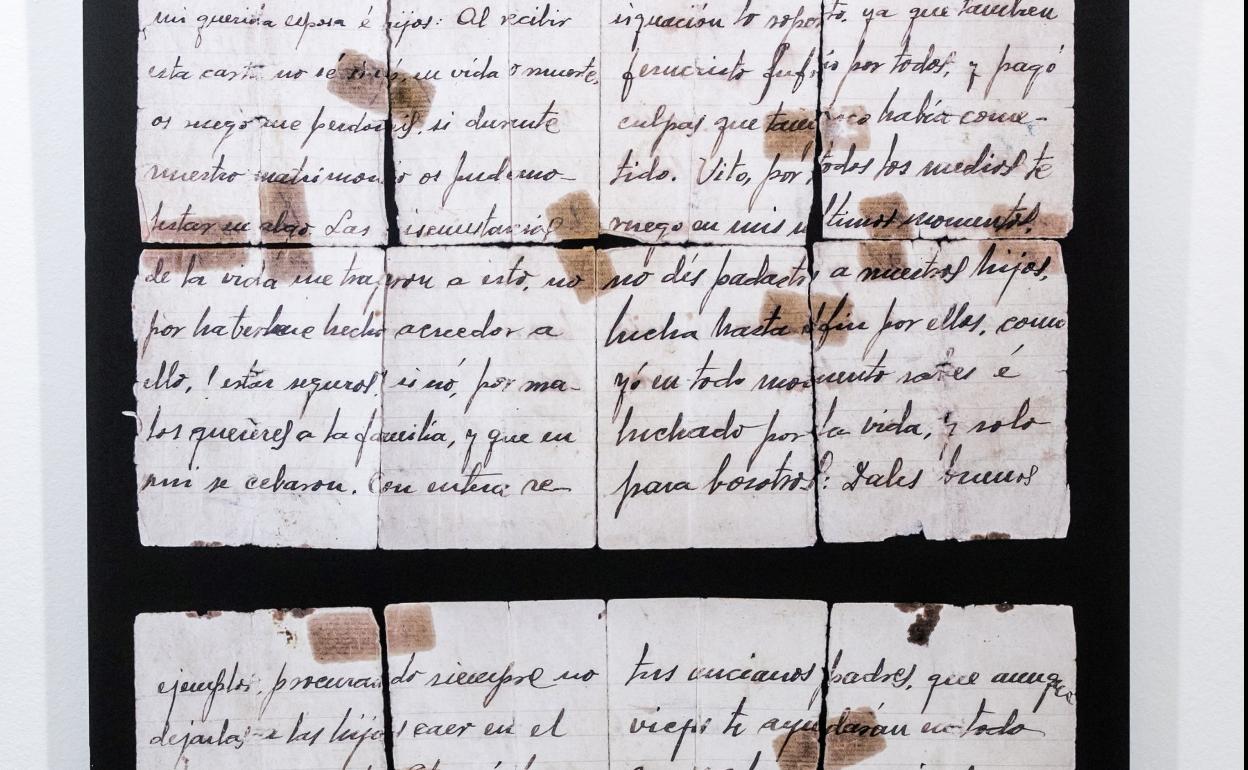 mi querida esposa é hijos: Al recibir
esta carta no sé si es, en vida o muerte,
os ruego me perdonéis, si durante
nuestro matrimonio os pude mo-
lestar en algo. Las sircunstancias
de la vida me trajeron a esto, no
por haberme hecho acreedor a
ello, ! estar seguros! si nó, por ma-
los quereres a la familia, y que en
mi se cebaron. Con entera re-
signación lo soporto, ya que tambien
Jesucristo sufrió por todos, y pagó
culpas que tampoco había come-
tido. Vito, por todos los medios te
ruego en mis ultimos momentos,
no dés padastro a nuestros hijos,
lucha hasta el fin por ellos, como
yó en todo momento sabes é
luchado por la vida, y solo
para bosotros: Dales buenos
ejemplos, procurando siempre no
dejarlas a las hijas caer en el
tus ancianos padres, que aunque
viejos te ayudarán en todo